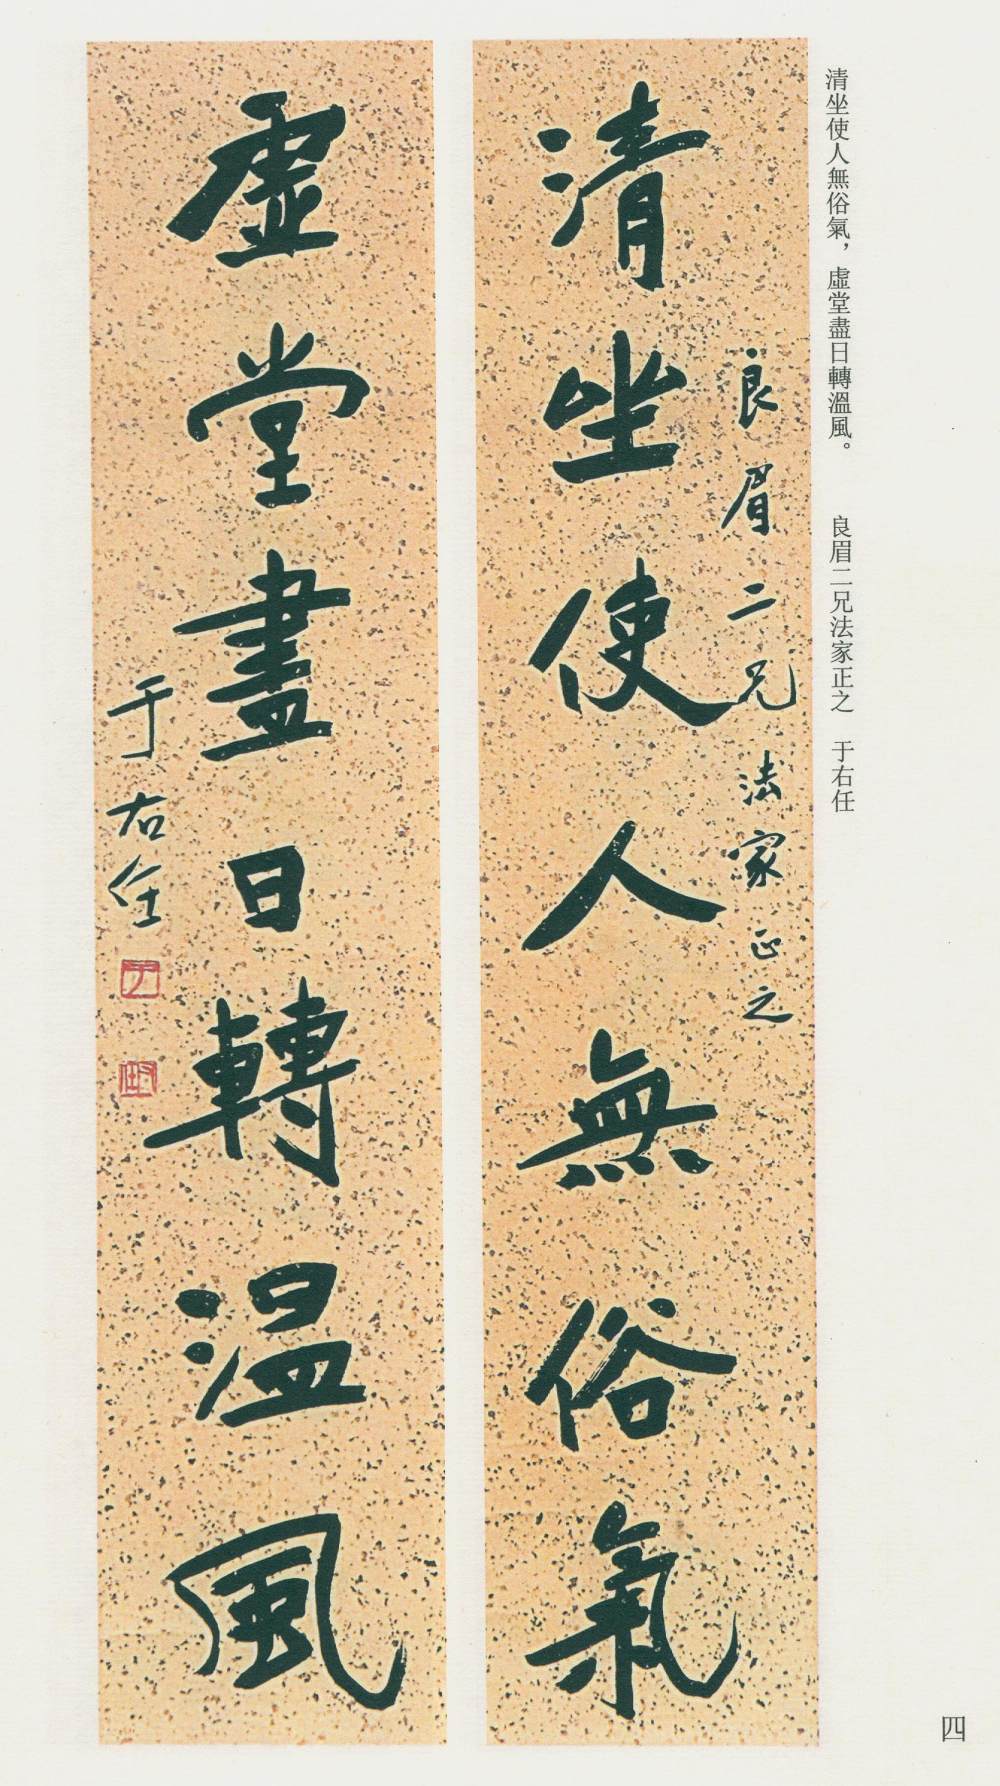 清坐使人無俗氣，虛堂盡日轉溫風。　良眉二兄法家正之　于右任
良眉二兄法家正之
清坐使人無俗氣
虛堂盡日轉温風
于右任
四